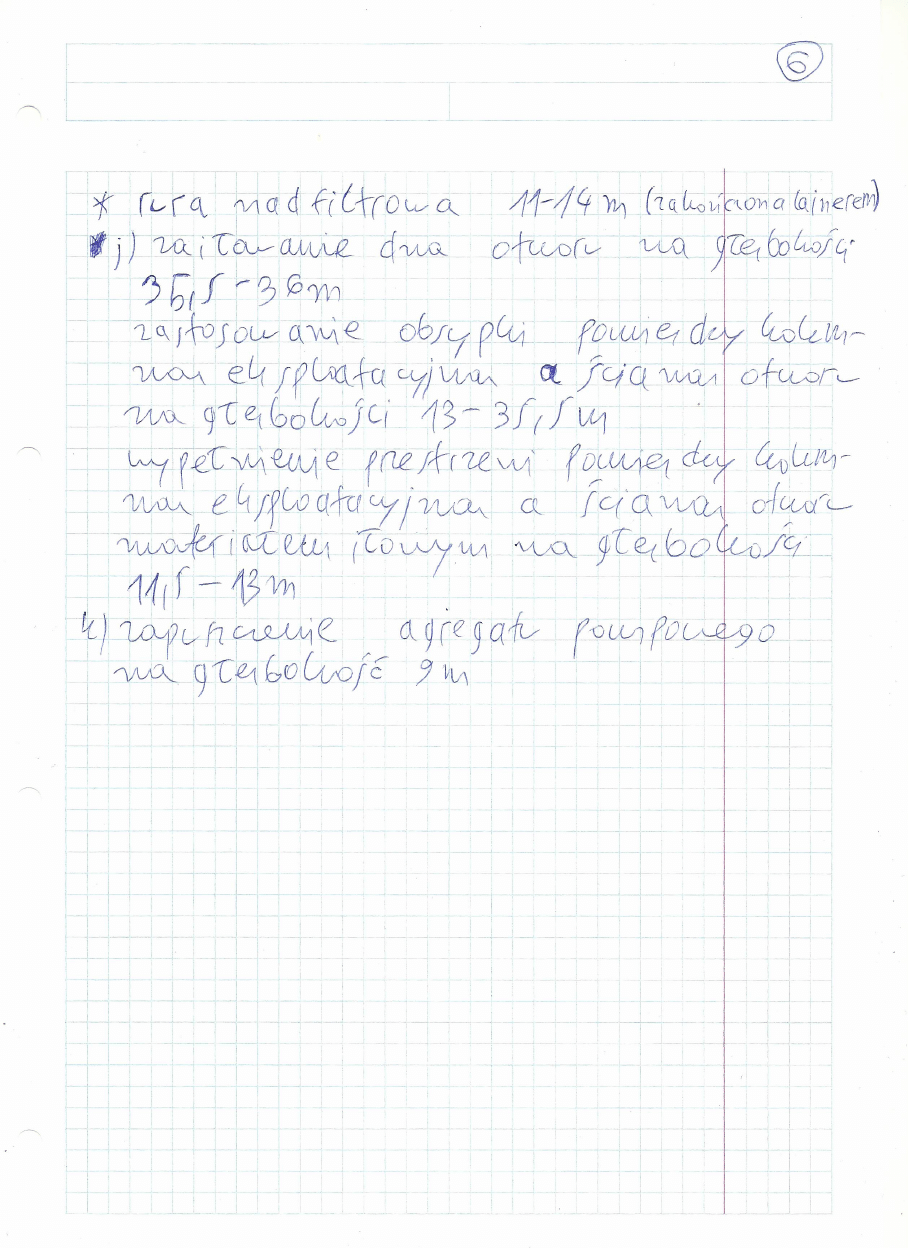 6
* rura nadfiltrowa 11-14 m (zakończona lajnerem)
j) zaiłowanie dna otworu na głębokości
35,5 - 36m
zastosowanie obsypki pomiędzy kolum-
ną eksploatacyjną a ścianą otworu
na głębokości 13 - 35,5 m
wypełnienie przestrzeni pomiędzy kolum-
ną eksploatacyjną a ścianą otworu
materiałem iłowym na głębokości
11,5 - 13 m
k) zapuszczenie agregatu pompowego
na głębokość 9 m